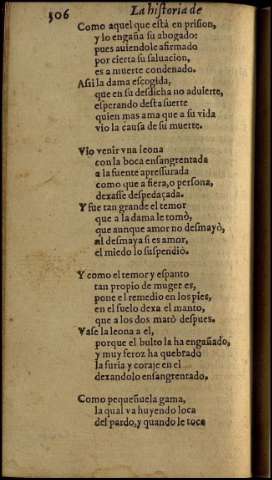 506
La historia de
Como aquel que està en prision,
y lo engaña su abogado:
pues auiendole afirmado
por cierta su saluacion,
es a muerte condenado.
Assi la dama escogida,
que en su desdicha no adulterte,
esperando desta suerte
quien mas ama que a su vida
vio la causa de su muerte.
Vio venir vna leona
con la boca ensangrentada
a la fuente apressurada
como que a fiera, o persona,
dexasse despedaçada.
Y fue tan grande el temor
que a la dama le tomò,
que aunque amor no desmayò,
al desmaya si es amor,
el miedo lo suspendiò.
Y como el temor y espanto
tan propio de muger es,
pone el remedio en los pies,
en el suelo dexa el manto,
que a los dos matò despues.
Vase la leona a el,
porque el bulto la ha engañado,
y muy feroz ha quebrado
la furia y coraje en el
dexandolo ensangrentado.
Como pequeñuela gama,
la qual va huyendo loca
del pardo, y quando le toca